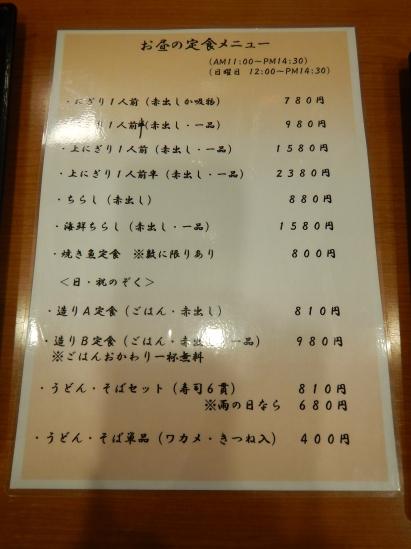 お昼の定食メニュー
(AM11:00~PM14:30)
(日曜日 12:00~PM14:30)
・にぎり1人前(赤出しか吸物) 780円
1人前半(赤出し・一品) 980円
・上にぎり1人前(赤出し・一品) 1580円
・上にぎり1人前半(赤出し・一品) 2380円
・ちらし(赤出し) 880円
・海鮮ちらし(赤出し・一品) 1580円
・焼き魚定食 ※数に限りあり 800円
<日・祝のぞく>
・造りA定食(ごはん・赤出し) 810円
・造りB定食(ごはん・赤出し・一品) 980円
※ごはんおかわり一杯無料
・うどん・そばセット(寿司6貫) 810円
※雨の日なら 680円
・うどん・そば単品(ワカメ・きつね入) 400円